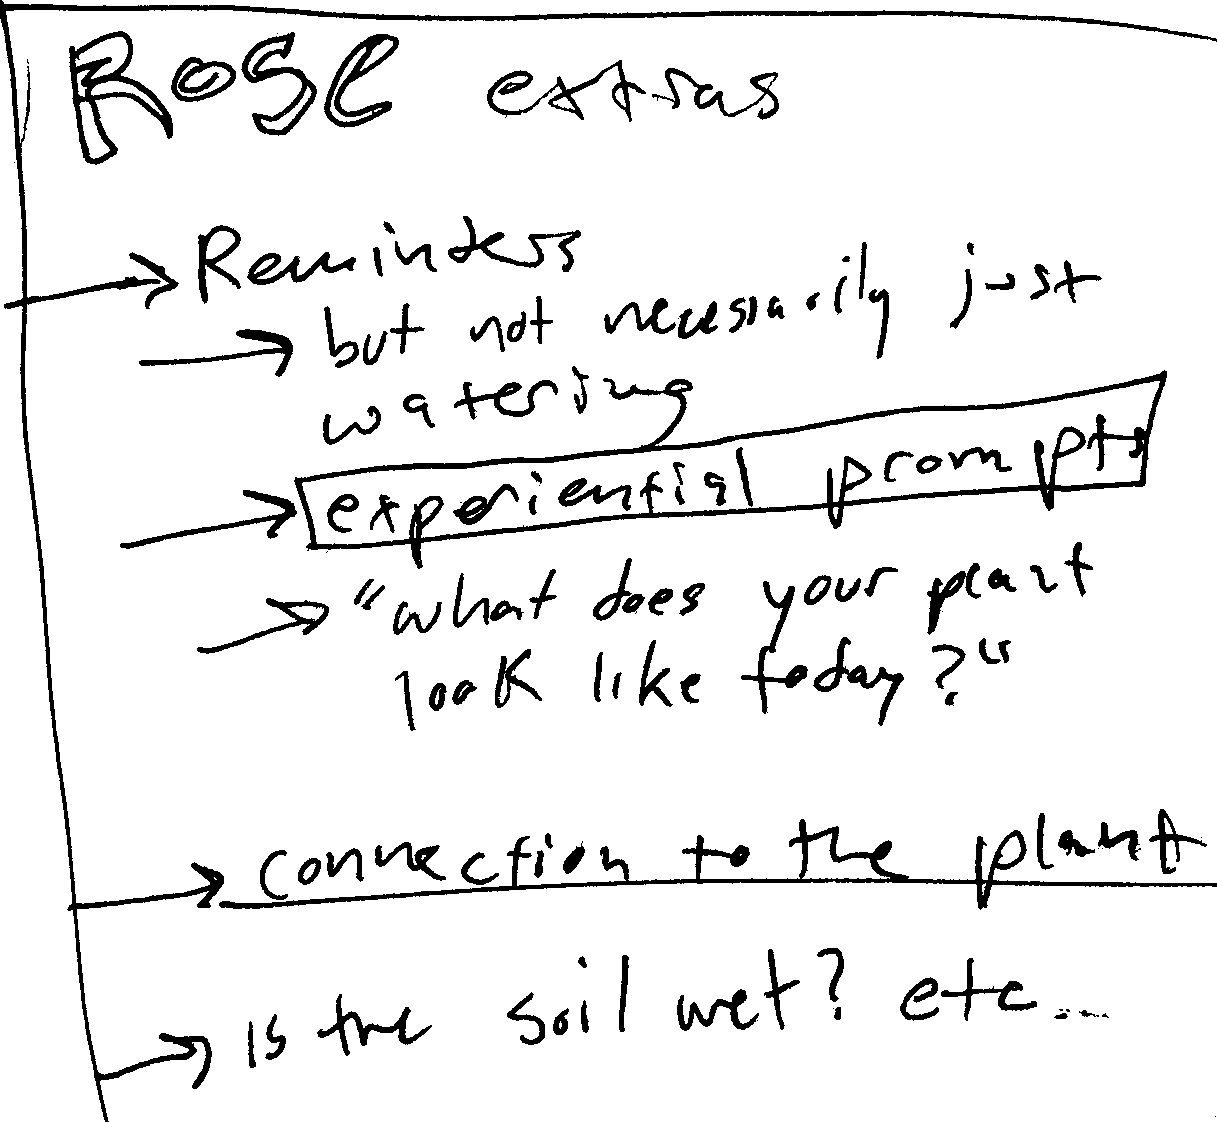 Rose extras
→ Reminders
→ but not necessarily just
watering
→ experiential prompts
→ "what does your plant
look like today?"
→ connection to the plant
→ is the soil wet? etc...